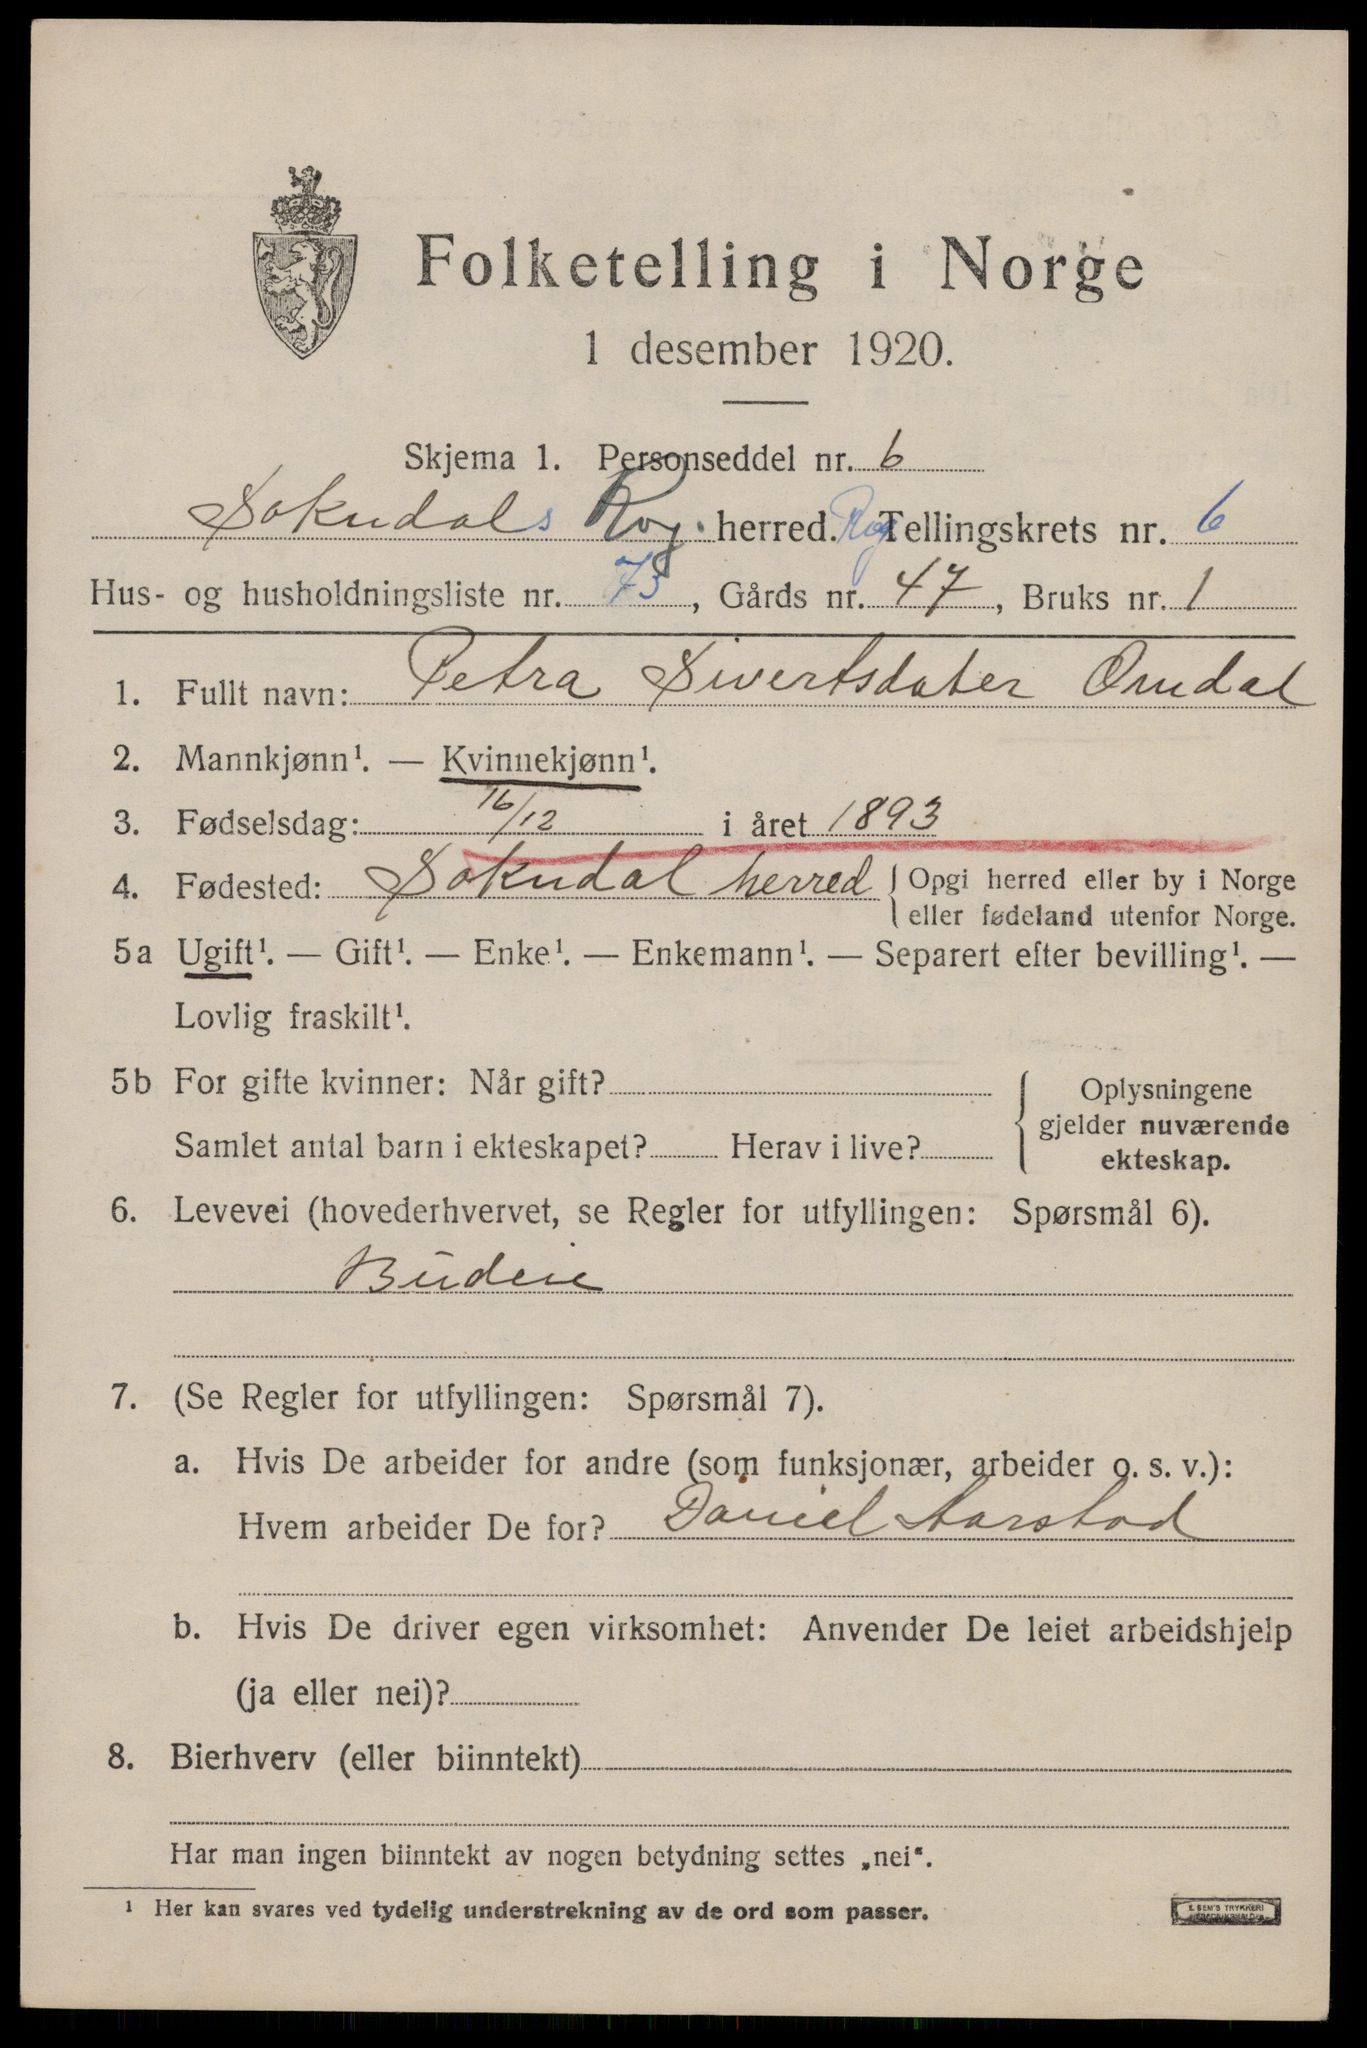 Folketelling i Norge
1 desember 1920.
Skjema 1. Personseddel nr. 6
Sokndals Rog. herred. Rog Tellingskrets nr. 6
Hus- og husholdningsliste nr. 73, Gårds nr. 47, Bruks nr. 1
1. Fullt navn: Petra Sivertsdater Omdal
2. Mannkjønn¹. — Kvinnekjønn¹.
3. Fødselsdag: 16/12 i året 1893
4. Fødested: Sokndal herred { Opgi herred eller by i Norge
eller fødeland utenfor Norge.
5a Ugift¹. — Gift¹. — Enke¹. — Enkemann¹. — Separert efter bevilling¹. —
Lovlig fraskilt¹.
5b For gifte kvinner: Når gift?
Samlet antal barn i ekteskapet? Herav i live?
Oplysningene
gjelder nuværende
ekteskap.
6. Levevei (hovederhvervet, se Regler for utfyllingen: Spørsmål 6).
Budeie
7. (Se Regler for utfyllingen: Spørsmål 7).
a. Hvis De arbeider for andre (som funksjonær, arbeider o. s. v.):
Hvem arbeider De for? Daniel Aarstad
b. Hvis De driver egen virksomhet: Anvender De leiet arbeidshjelp
(ja eller nei)?
8. Bierhverv (eller biinntekt)
Har man ingen biinntekt av nogen betydning settes „nei“.
¹ Her kan svares ved tydelig understrekning av de ord som passer.
E. SEM'S TRYKKERI
FREDRIKSHALD